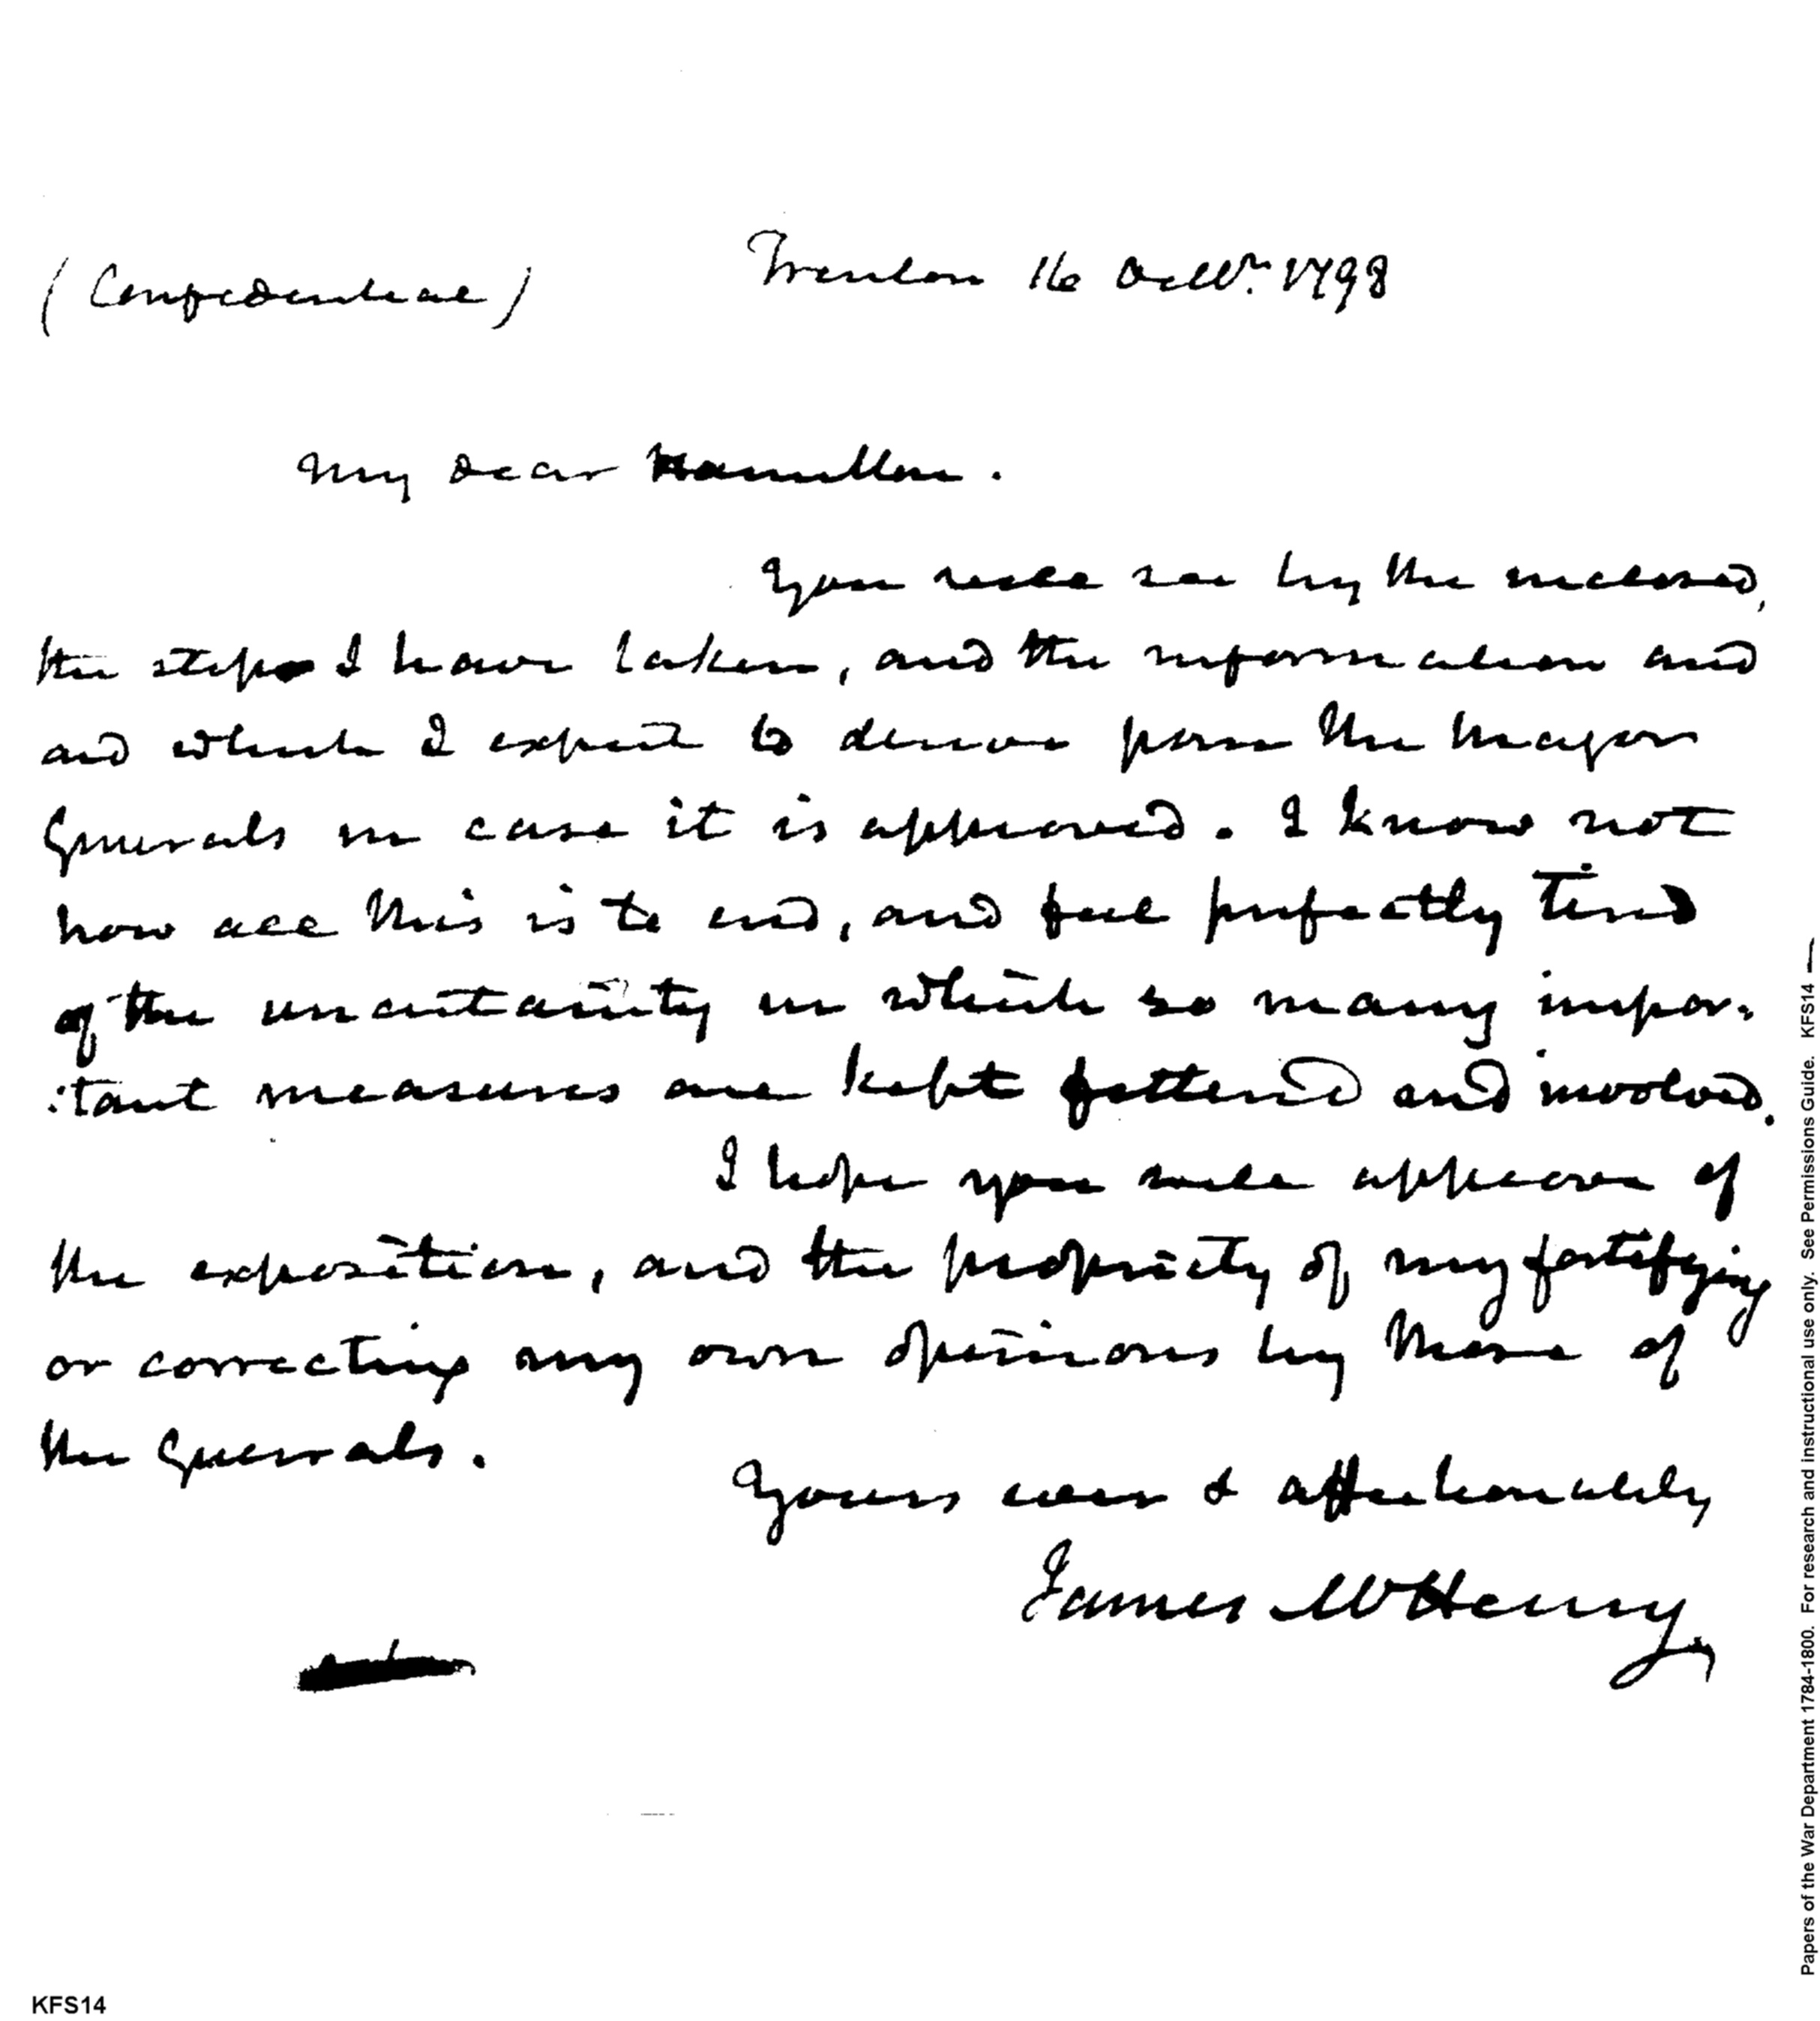 (Confidential)
Trenton 16 Octbr. 1798
My dear Hamilton.
You will see by the inclosed,
the steps I have taken, and the information and
aid which I expect to derive from the Major
Generals in case it is approved. I know not
how all this is to end, and feel perfectly tired
of the uncertainty in which so many impor-
:tant measures are kept fettered and involved.
I hope you will approve of
the exposition, and the propriety of my fortifying
or correcting my own opinions by those of
the Generals.
Yours ever & affectionately
James McHenry
KFS14
Papers of the War Department 1784-1800. For research and instructional use only. See Permissions Guide. KFS14 —